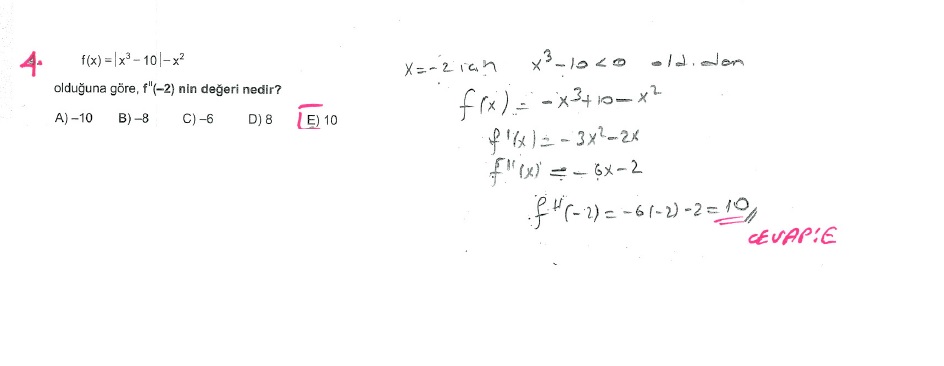 4. f(x) = |x³ – 10| – x²
olduğuna göre, f"(–2) nin değeri nedir?
A) –10 B) –8 C) –6 D) 8 E) 10
x=-2 için x³-10<0 old.dan
f(x) = -x³+10-x²
f'(x) = -3x²-2x
f"(x) = -6x-2
f"(-2) = -6(-2)-2 = 10
CEVAP:E